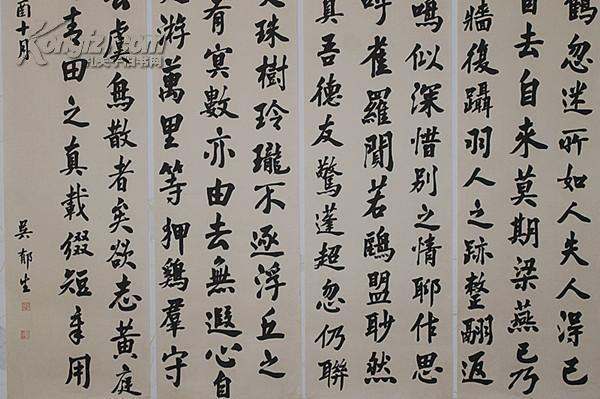 鶴忽迷所如人失人得已
自去自來莫期梁燕已乃
牆復躡羽人之跡整翮返
鳴似深惜別之情聊作思
呼雀羅聞若鷗盟眇然
真吾德友驚蓬超忽仍聯
珠樹玲瓏不逐浮丘之
有冥數亦由去無遐心自
游萬里等狎鷄羣守
虞無散者矣欲志黃庭
青田之真載綴短章用
酉十月
吳郁生
Kongfz.com
孔夫子旧书网